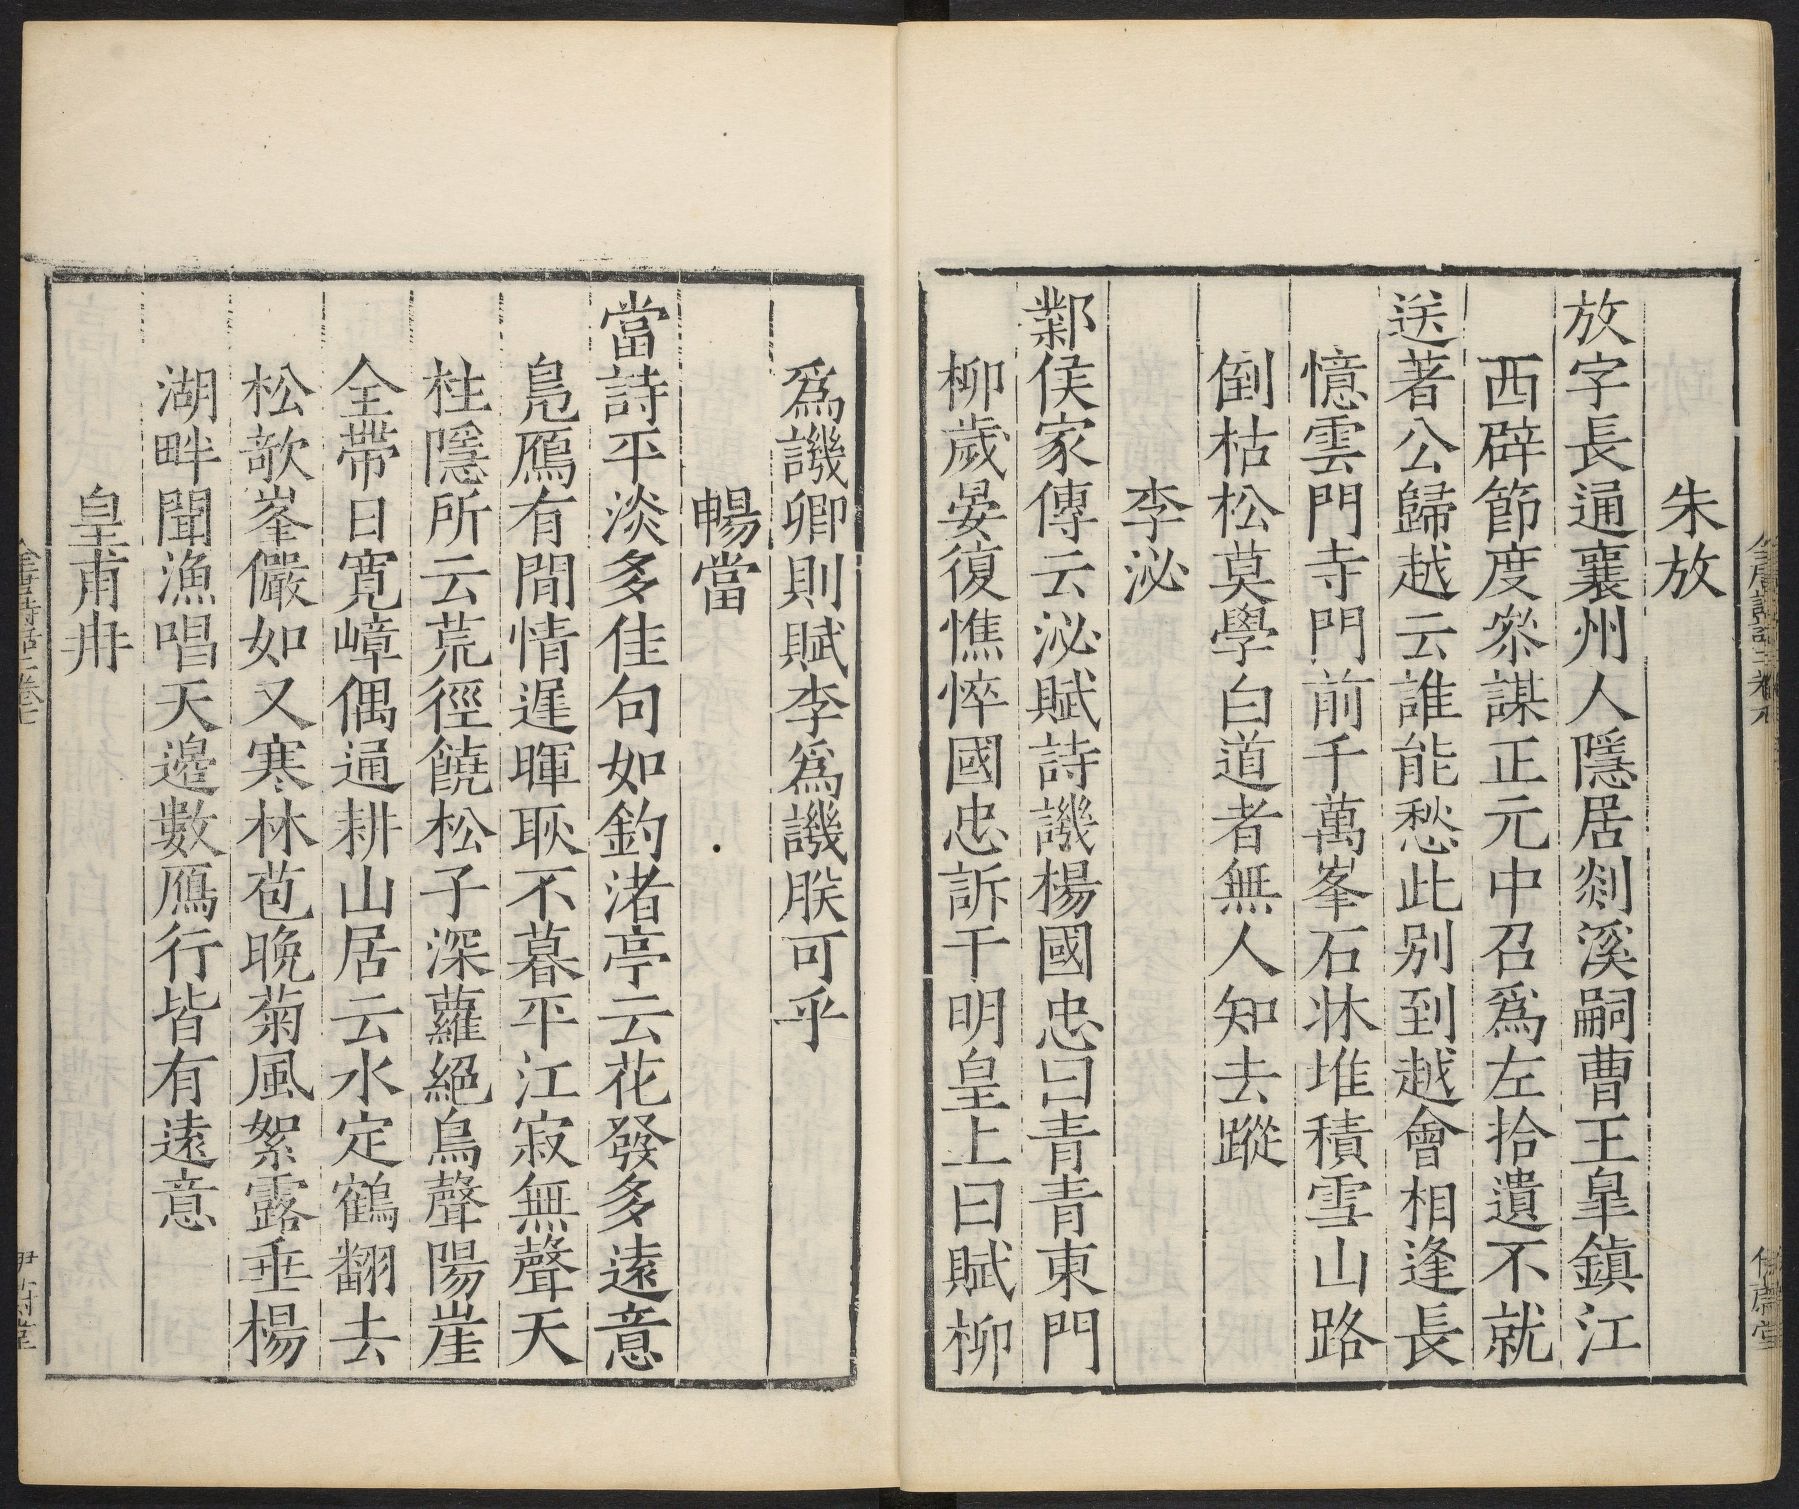 朱放
放字長通襄州人隱居剡溪嗣曹王皐鎮江
西辟節度叅謀正元中召爲左拾遺不就
送著公歸越云誰能愁此别到越會相逢長
憶雲門寺門前千萬峯石牀堆積雪山路
倒枯松莫學白道者無人知去蹤
李泌
鄴侯家傳云泌賦詩譏楊國忠曰青青東門
柳歲晏復憔悴國忠訴于明皇上曰賦柳
爲譏卿則賦李爲譏朕可乎
暢當
當詩平淡多佳句如釣渚亭云花發多遠意
鳬鴈有閒情遲暉耿不暮平江寂無聲天
柱隱所云荒徑饒松子深蘿絕鳥聲陽崖
全帶日寬嶂偶通耕山居云水定鶴翻去
松欹峯儼如又寒林苞晚菊風絮露垂楊
湖畔聞漁唱天邊數鴈行皆有遠意
皇甫冉